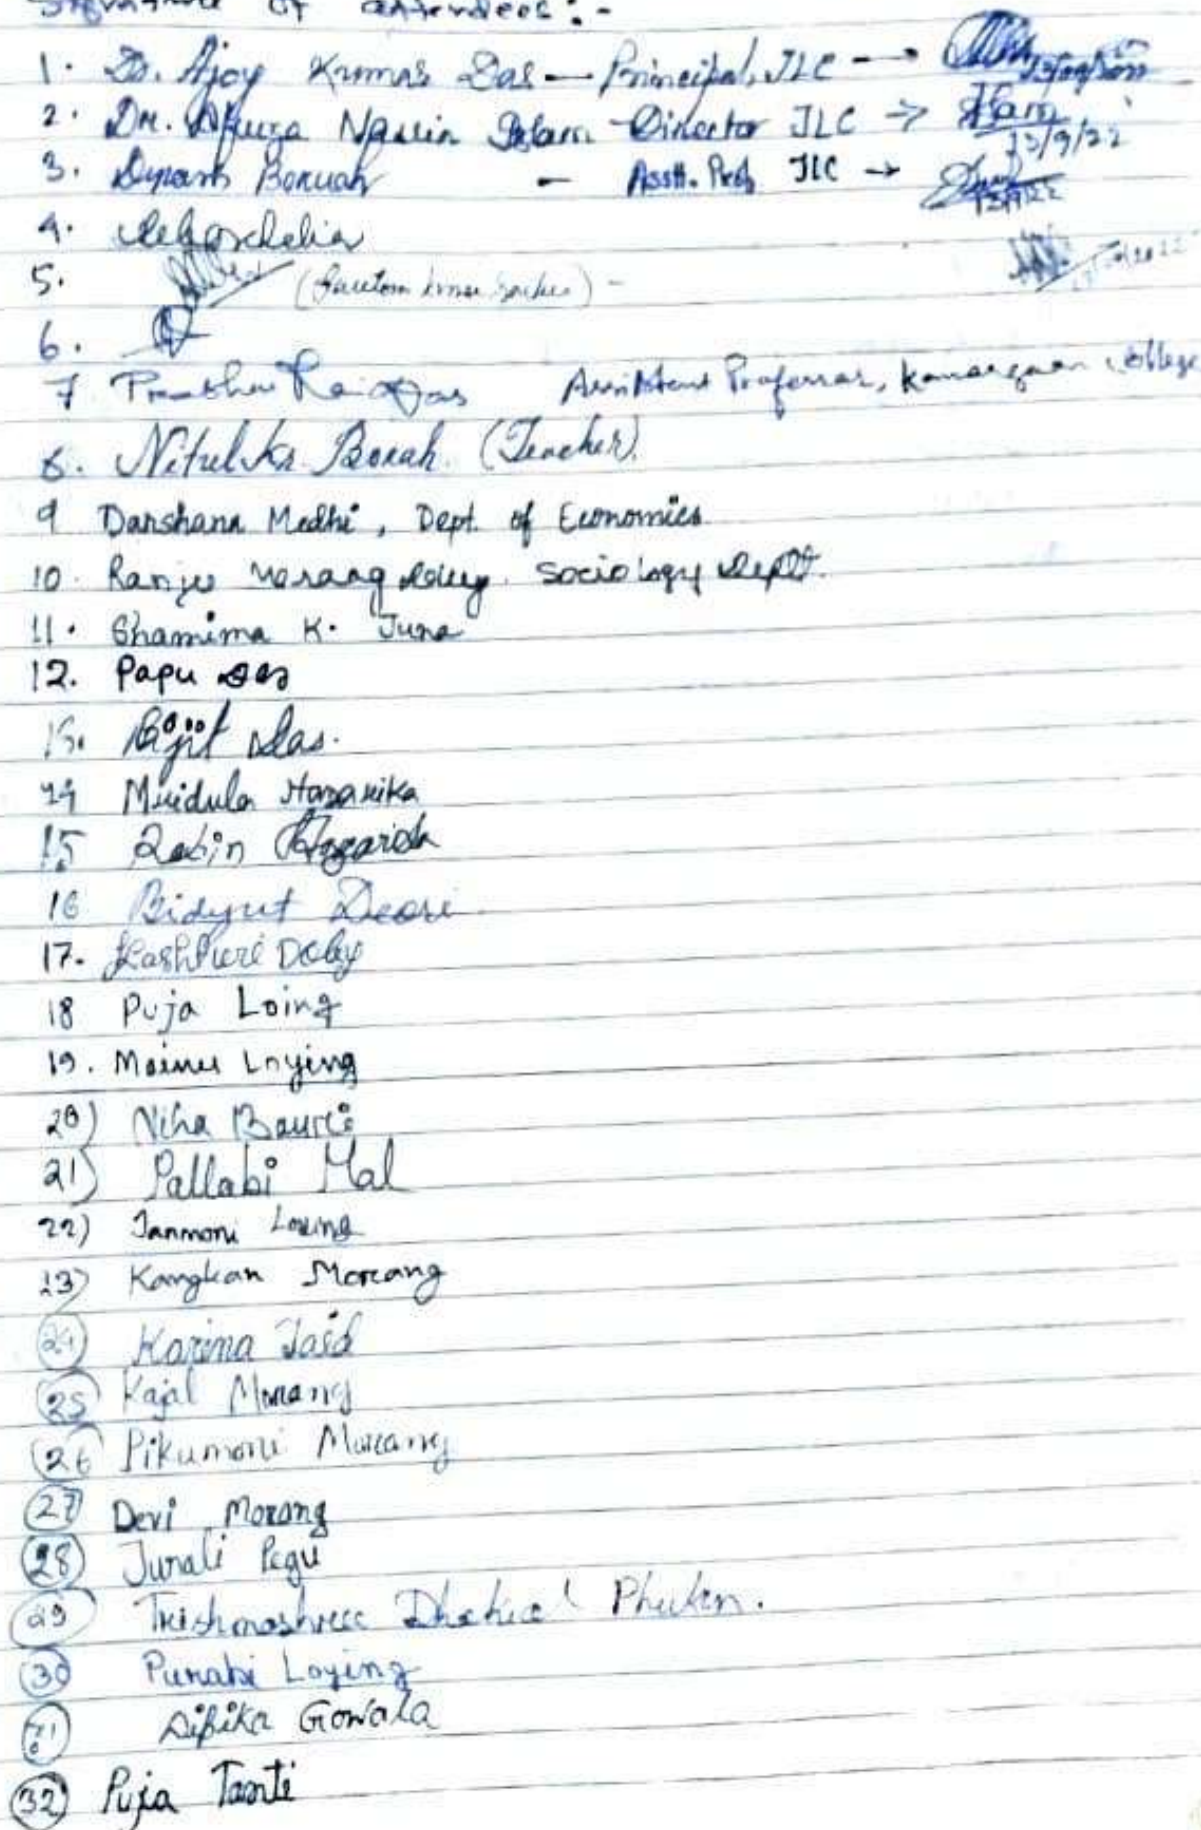 Signature of attendees:-
1. Dr. Ajoy Kumar Das — Principal, JLC →
2. Dr. Afruza Nasrin Islam - Director JLC → Islam 13/9/22
3. Dipam Boruah - Asstt. Prof JLC → 13/9/22
4.
5. (
6.
7 Das Assistant Professor, Kamargaon College
8. Nitul Kr. Borah (Teacher).
9 Darshana Medhi, Dept. of Economics
10. Ranju Morang Doley. Sociology Deptt.
11. Shamima K. Juna
12. Papu Das
13. Bijit Das.
14 Mridula Hazarika
15 Robin Hazarika
16 Bidyut Deori
17. Kashmiri Doley
18 Puja Loing
19. Mainu Loying
20) Niha Bauri
21) Pallabi Mal
22) Janmoni Loing
23) Kangkan Morang
24) Karina Taid
25) Kajal Morang
26 Pikumoni Morang
27 Devi Morang
28) Junali Pegu
29 Trishmashree Dhekial Phukan.
30 Purabi Loying
31 Dipika Gowala
32) Puja Tanti